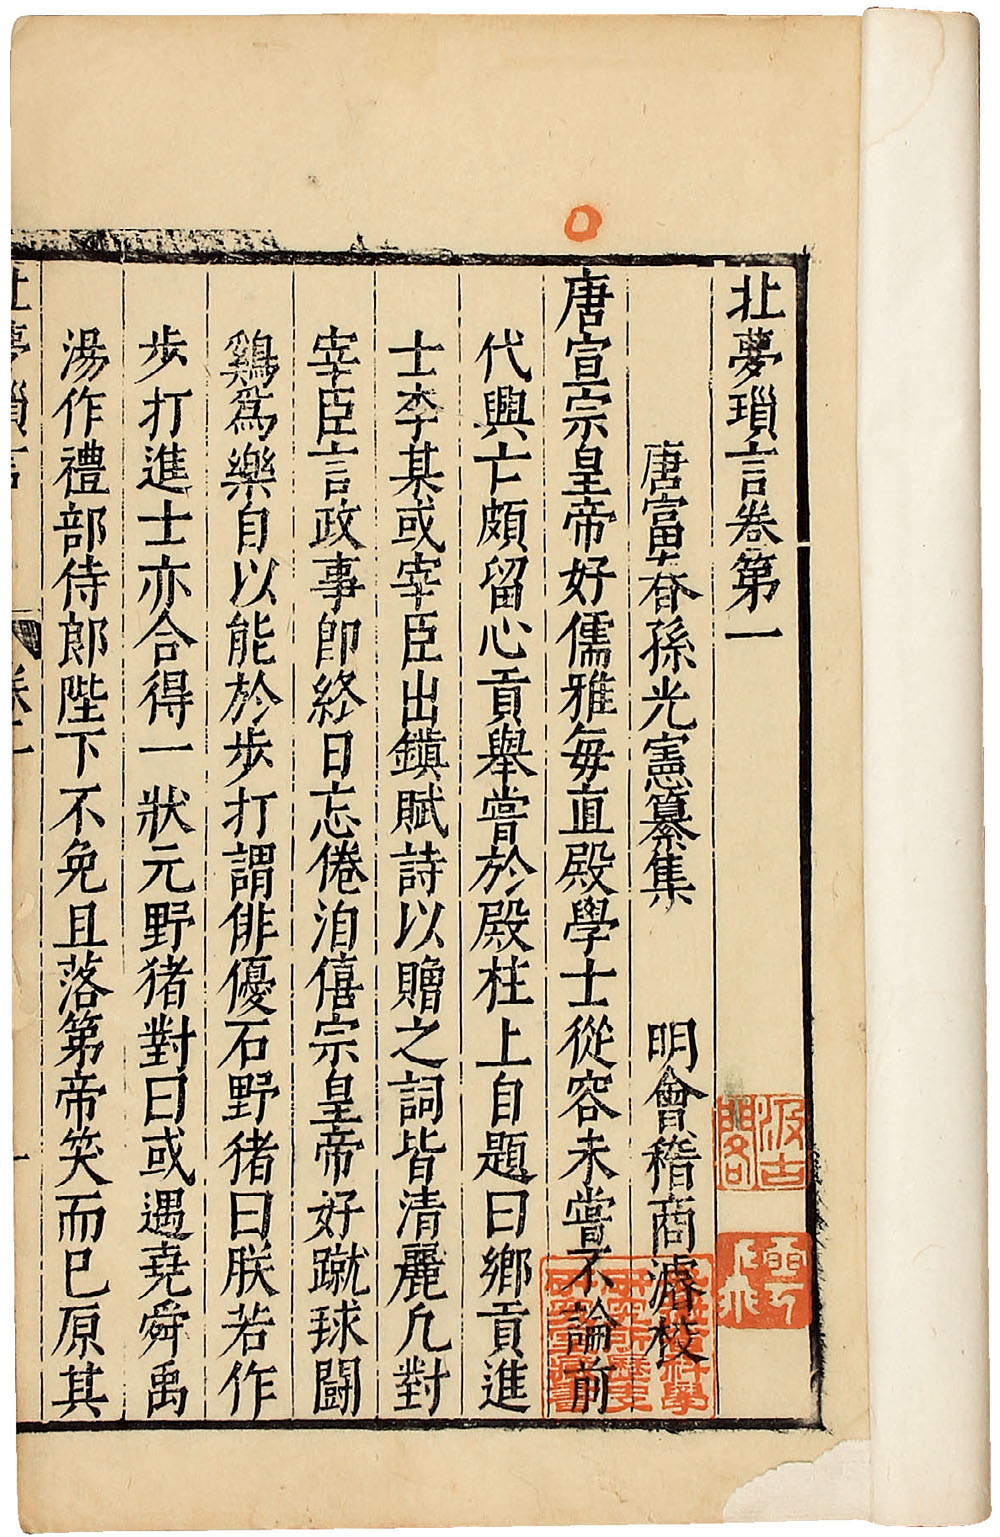 北夢瑣言卷第一
唐富春孫光憲纂集　明會稽商濬校
唐宣宗皇帝好儒雅每直殿學士從容未嘗不論前
代興亡頗留心貢舉嘗於殿柱上自題曰鄉貢進
士李某或宰臣出鎮賦詩以贈之詞皆清麗凡對
宰臣言政事即終日忘倦洎僖宗皇帝好蹴球鬪
鷄爲樂自以能於步打謂俳優石野猪曰朕若作
步打進士亦合得一狀元野猪對曰或遇堯舜禹
湯作禮部侍郎陛下不免且落第帝笑而已原其
北夢瑣言
卷一
一
汲古閣